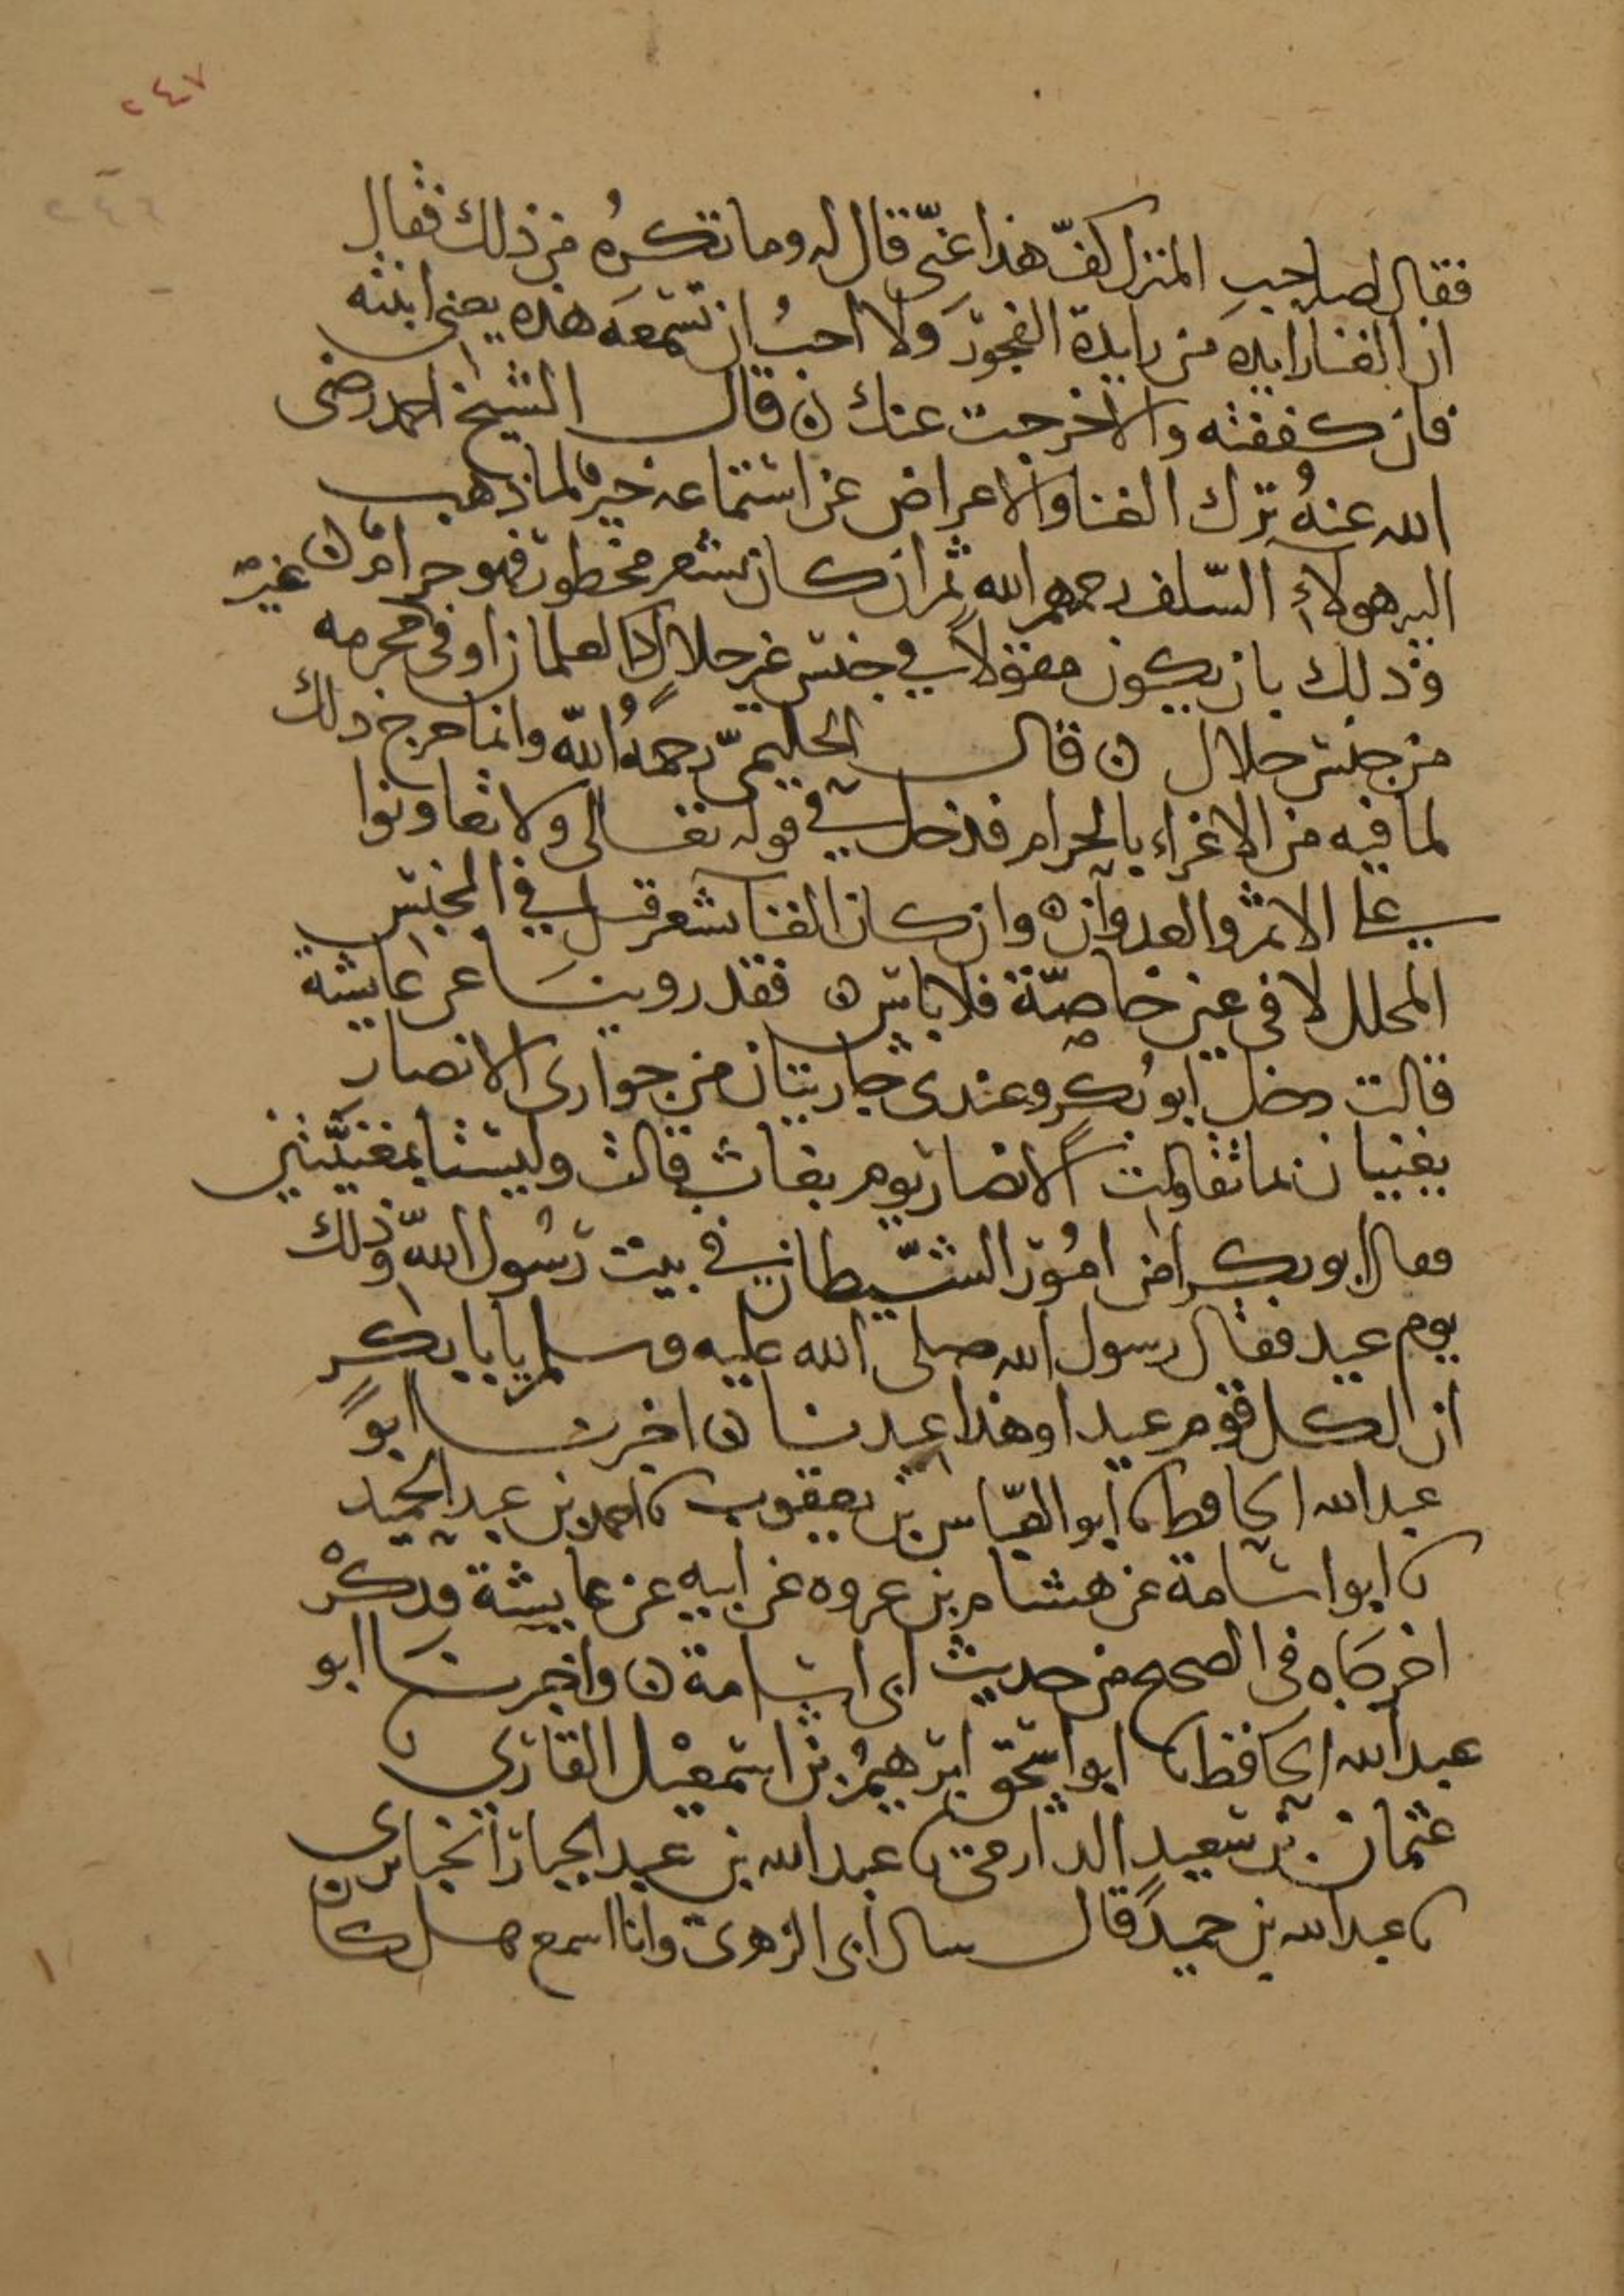 ٢٤٧
٢٤٦
فقال لصاحب المنزل كفّ هذا عنّى قال له وما تكرهُ من ذلك فقال
ان الغنا رايده من رايدة الفجور ولا احبُ ان تسمعه هذه يعنى ابنته
فان كففته والا خرجت عنك ن قال الشيخ احمد رضى
الله عنهُ ترك الغنا والاعراض عن استماعه خير لما ذهب
اليه هولاء السّلف رحمهم الله ثم ان كان بشعر محظور فهو حرامٌ ن غير
وذلك بان يكون مقولاً في جنس غير حلال كالغلمان او فى محرمه
من جنس حلال ن قال الحليمىّ رحمهُ اللّه وانما حرج ذلك
لما فيه من الاغراء بالحرام فدخل في قوله تعالى ولا تعاونوا
على الاثم والعدوان ه وان كان الغنا بشعر قيل في الجنس
المحلل لا فى عين خاصّة فلا باس ن فقد روينا عن عايشة
قالت دخل ابو بكر وعندى جاريتان من جوارى الانصار
يغنيان بما تقاولت الانصار يوم بغاث قالت وليستا بمغنيّتين
فعال ابو بكر امن امُور الشّيطان في بيت رسُول اللّه وذلك
يوم عيد فقال رسول الله صلى الله عليه وسلم يابا بكر
ان لكل قوم عيدا وهذا عيدنا ن اخبرنا ابو
عبد الله الحافظ نا ابو العبّاس بن يعقوب نا احمد بن عبد الحميد
نا ابو اسامة عن هشام بن عروه عن ابيه عن عايشة فذكرْ
اخرجاه فى الصحيح من حديث ابى اسامة ن واخبرنا ابو
عبد الله الحافظ نا ابو اسحق ابرهيمُ بن اسمعيْل القارى نا
عثمان بن سعيد الدارمى نا عبد الله بن عبد الجبار الخبايرى
نا عبد الله بن حميد قال سال ابى الزهرى وانا اسمع هل كان